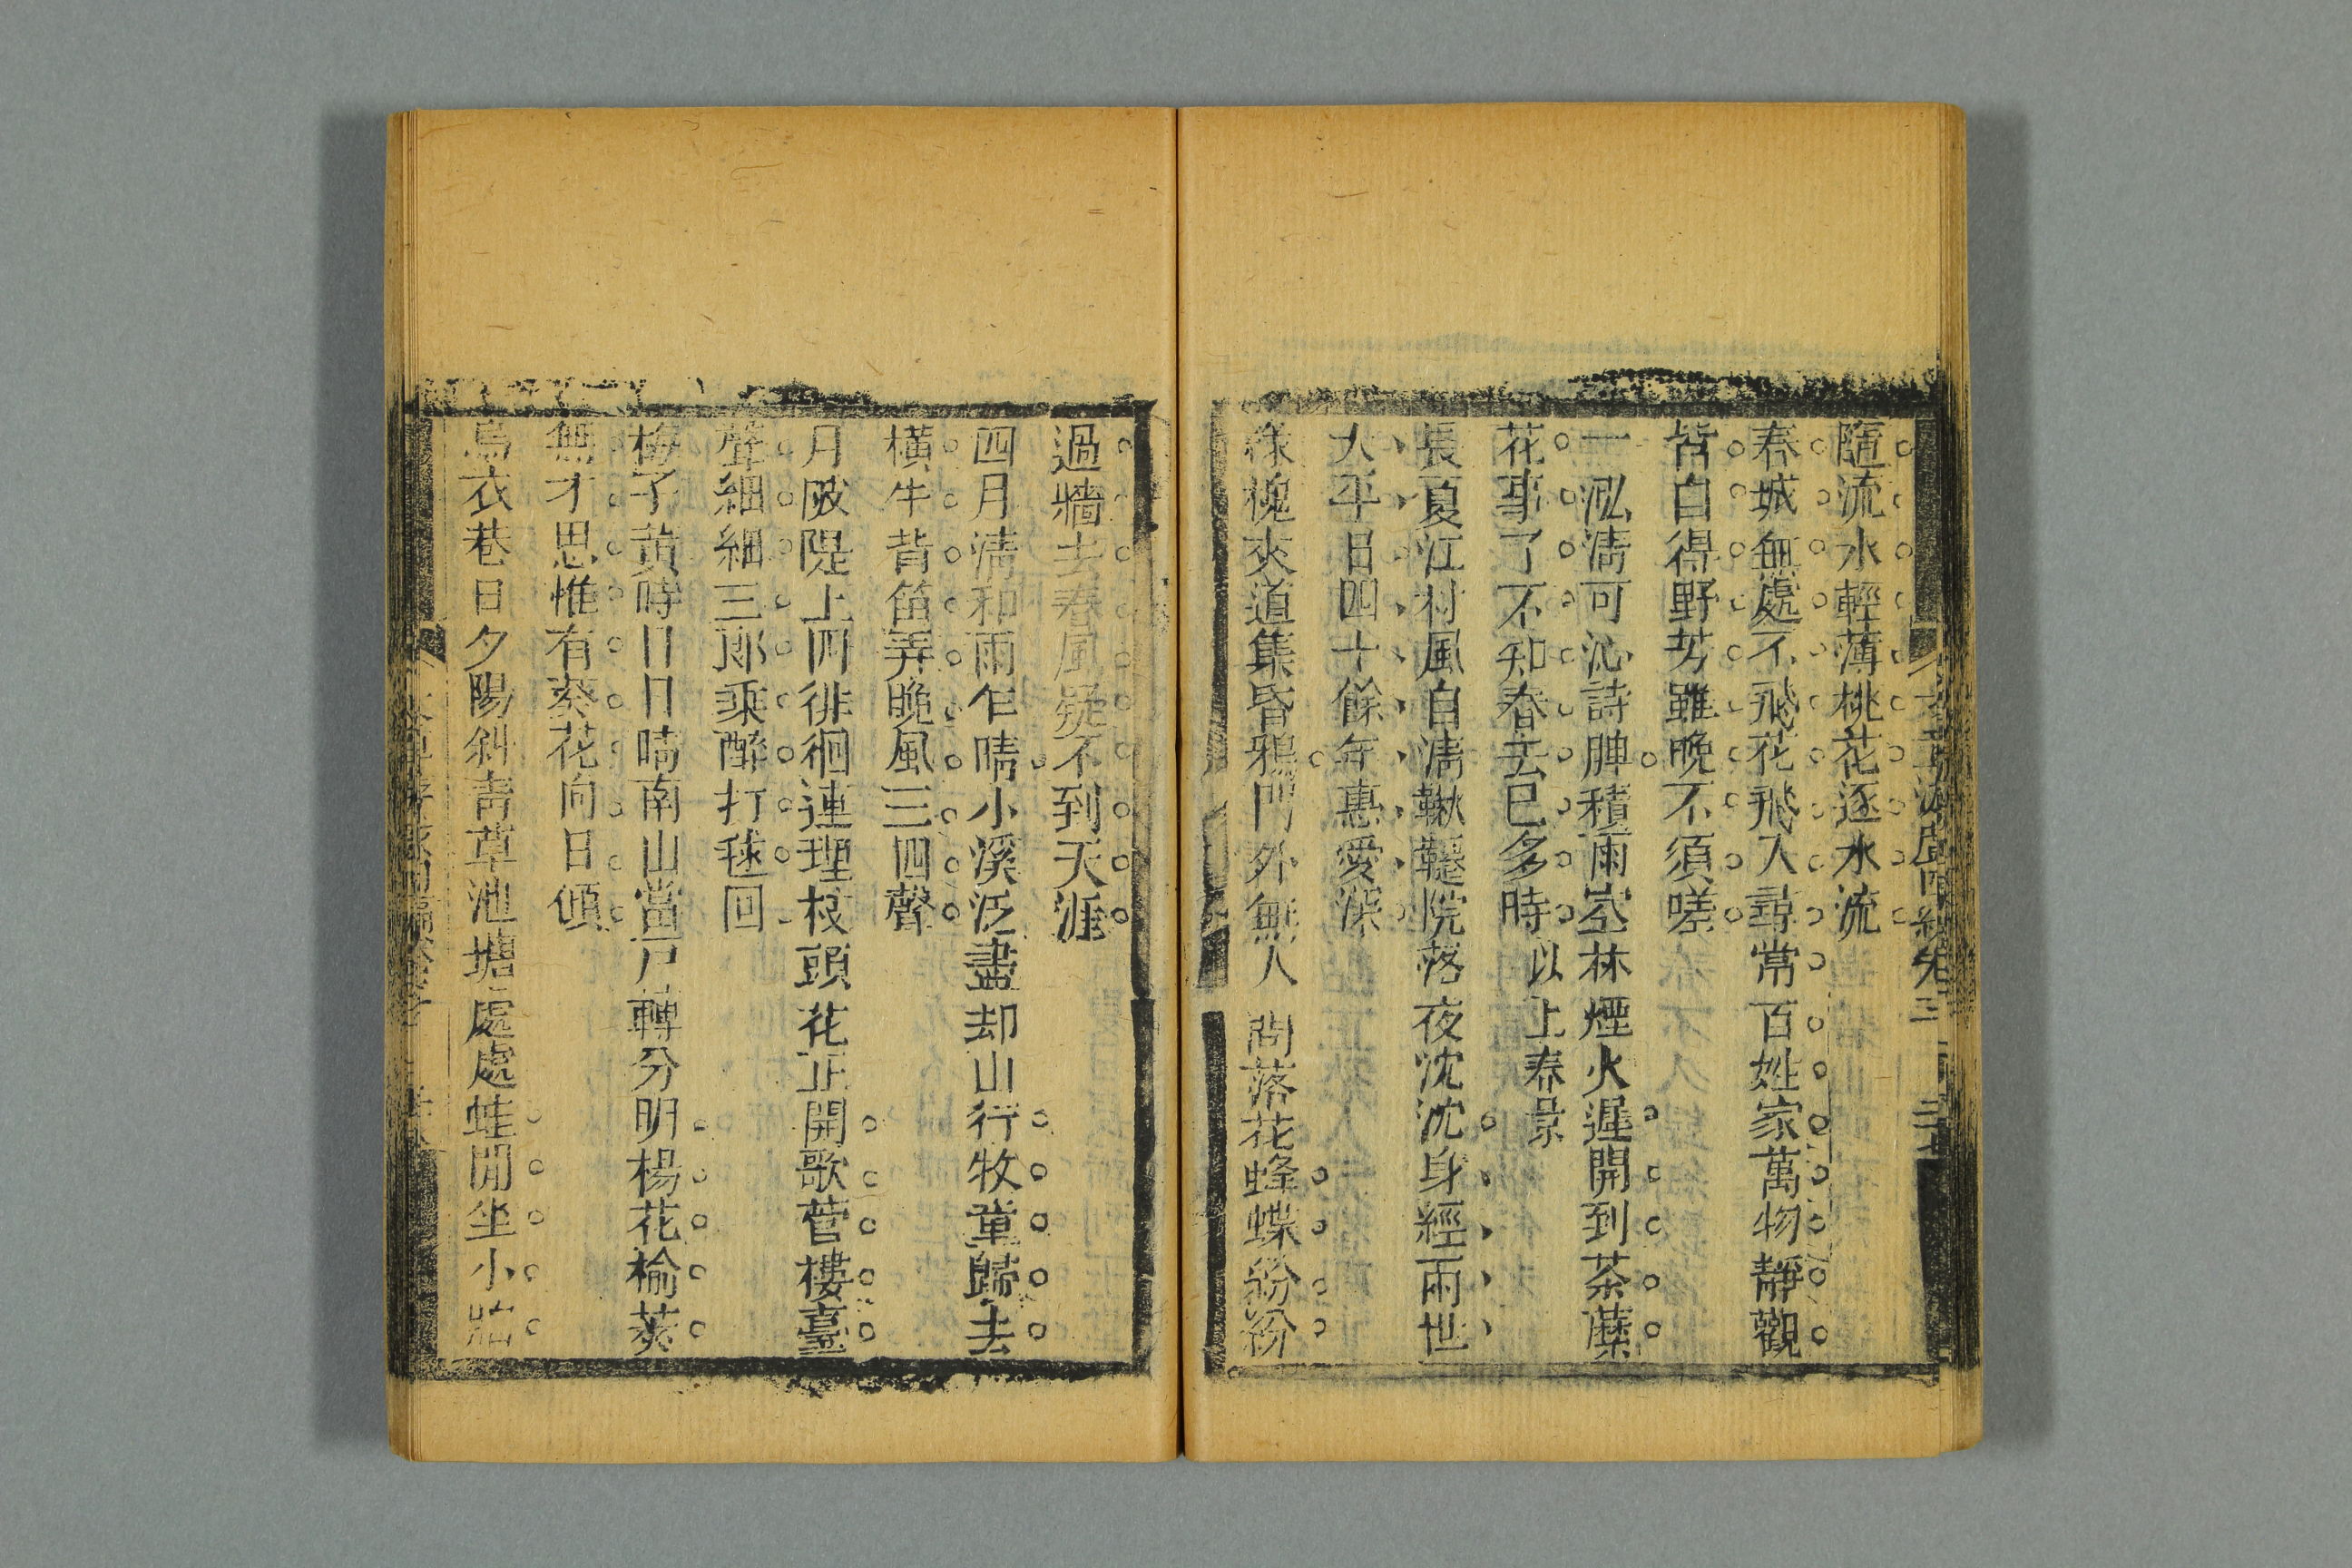 隨流水輕薄桃花逐水流
春城無處不飛花飛入尋常百姓家萬物靜觀
皆自得野芳雖晚不須嗟
一泓淸可沁詩脾積雨空林煙火遲開到荼蘼
花事了不知春去已多時以上春景
長夏江村風自淸鞦韆院落夜沈沈身經兩世
太平日四十餘年惠愛深
綠槐夾道集昏鴉門外無人問落花蜂蝶紛紛
過牆去春風疑不到天涯
四月淸和雨乍晴小溪泛盡却山行牧童歸去
橫牛背笛弄晚風三四聲
月陂隄上四徘徊連理枝頭花正開歌管樓臺
聲細細三郞乘醉打毬回
梅子黃時日日晴南山當戶轉分明楊花榆莢
無才思惟有葵花向日傾
烏衣巷口夕陽斜靑草池塘處處蛙閒坐小牕